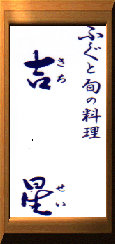 ふぐと旬の料理
吉星
きちせい